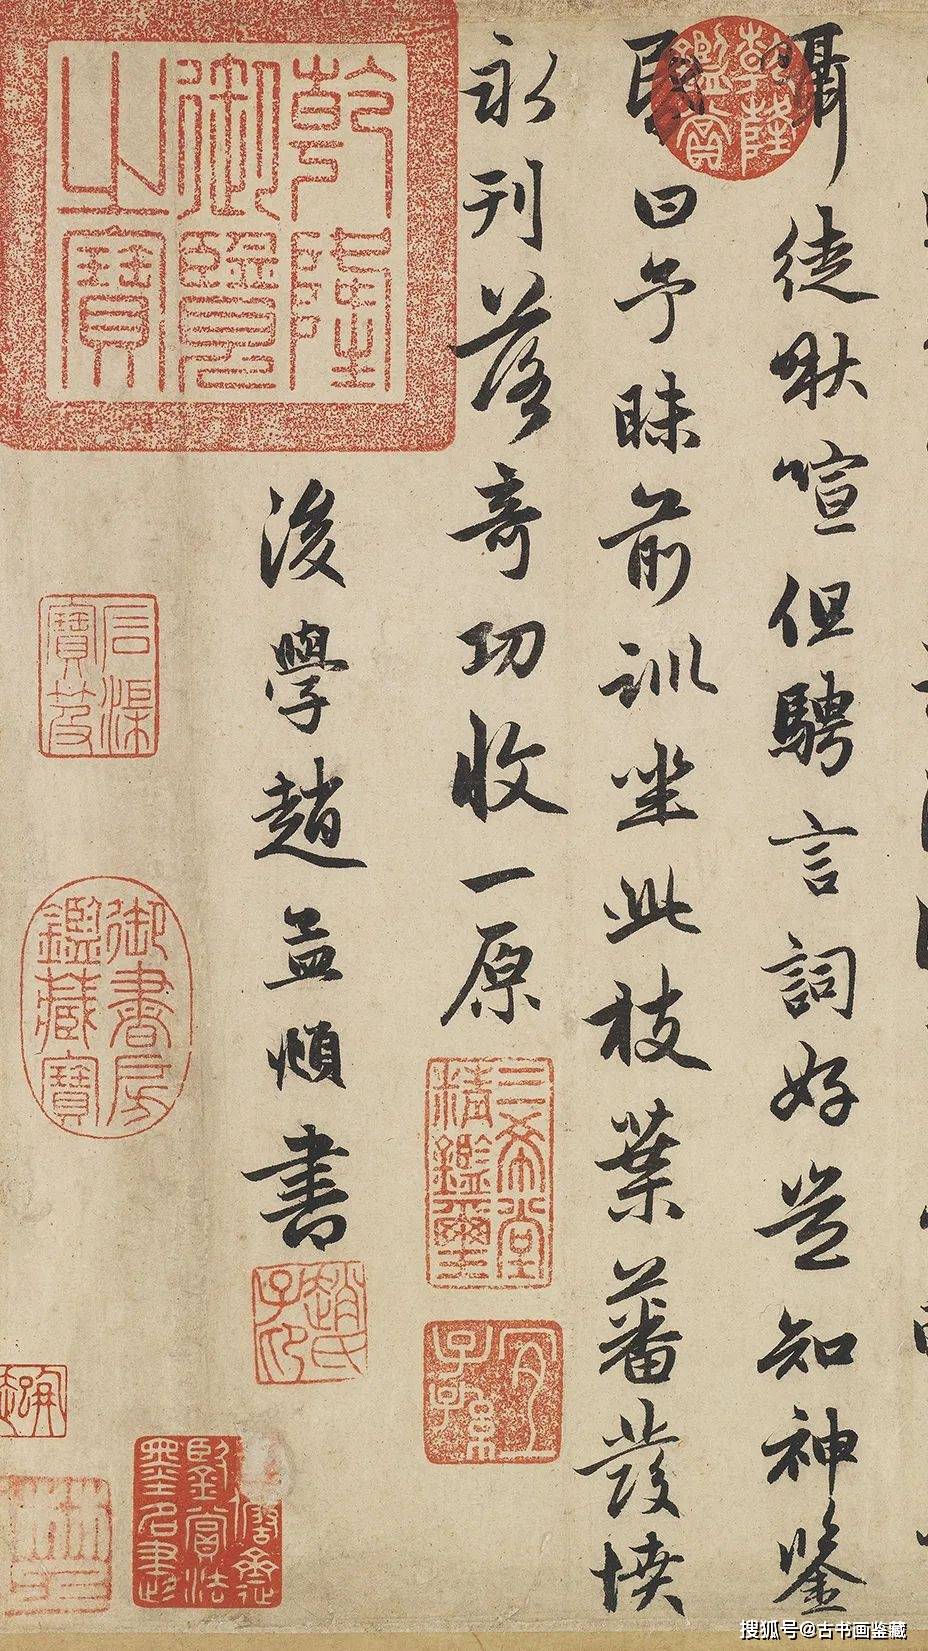 囁徒啾喧但騁言詞好豈知神鑒
昏曰予昧前訓坐此枝葉蕃發憤
永刊落奇功收一原
後學趙孟頫書
乾隆鑑賞
乾隆御覽之寶
三希堂精鑑璽
宜子孫
趙氏子昂
石渠寶笈
御書房鑑藏寶
搜狐号@古书画鉴藏